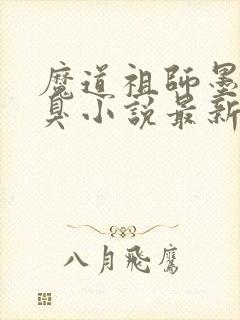 魔道祖師墨
臭小説最新
八月飛鷹